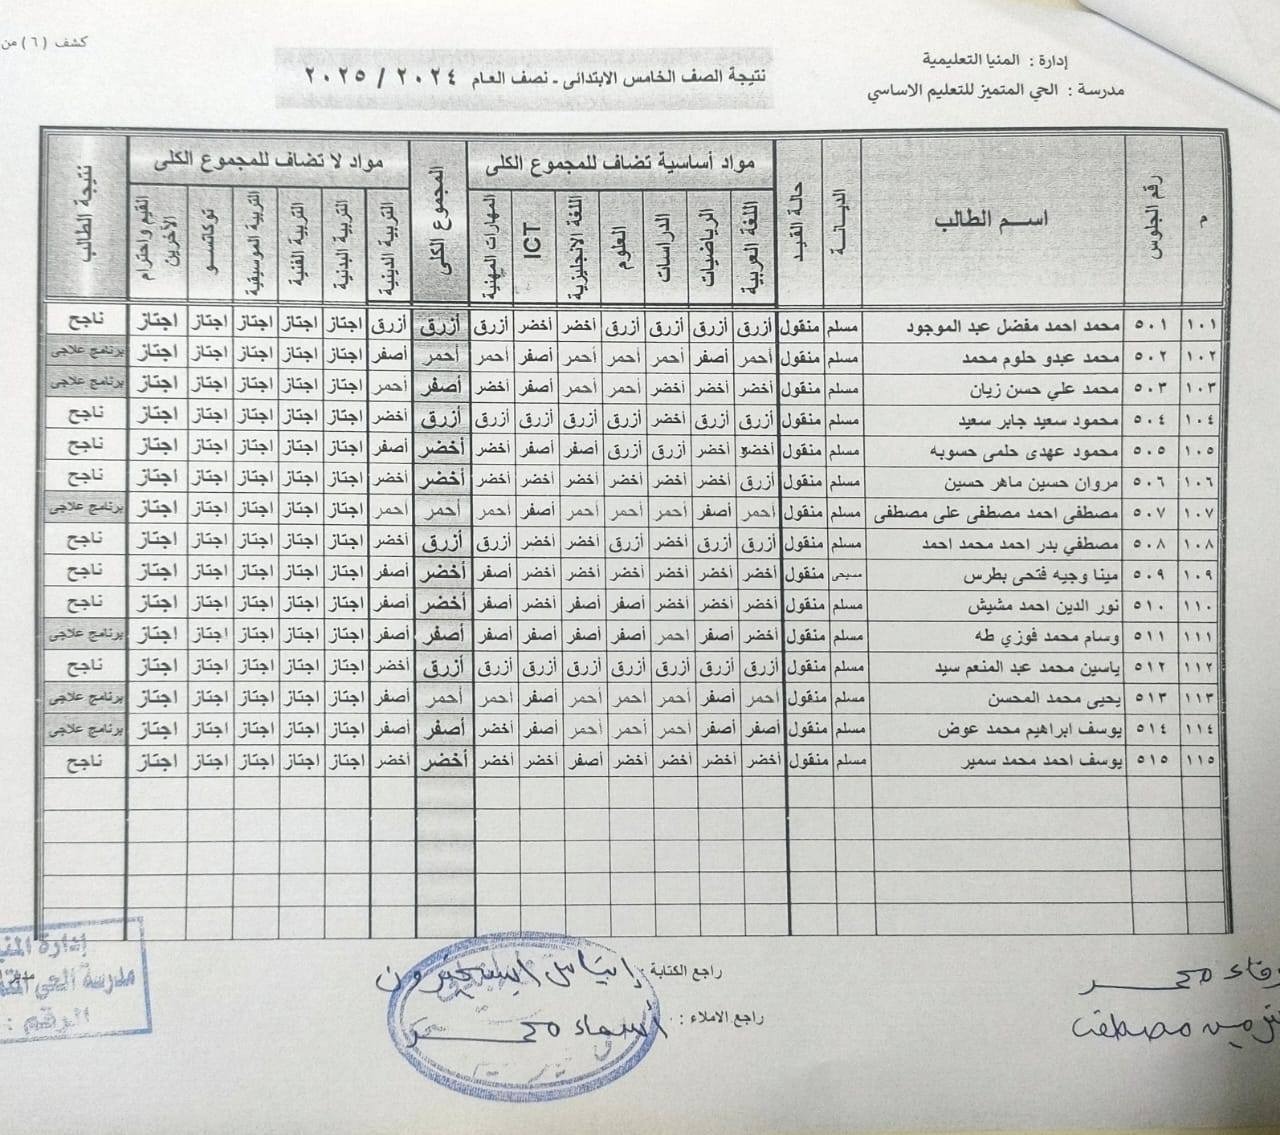 كشف (٦) من
إدارة : المنيا التعليمية
مدرسة : الحي المتميز للتعليم الاساسي
نتيجة الصف الخامس الابتدائى - نصف العام ٢٠٢٤ / ٢٠٢٥
م رقم الجلوس اسم الطالب الديانة حالة القيد مواد أساسية تضاف للمجموع الكلى المجموع الكلى مواد لا تضاف للمجموع الكلى نتيجة الطالب
اللغة العربية الرياضيات الدراسات العلوم اللغة الانجليزية ICT المهارات المهنية التربية الدينية التربية البدنية التربية الفنية التربية الموسيقية توكاتسو القيم واحترام الأخرين
١٠١ ٥٠١ محمد احمد مفضل عبد الموجود مسلم منقول أزرق أزرق أزرق أزرق أخضر أخضر أزرق أزرق أزرق اجتاز اجتاز اجتاز اجتاز اجتاز ناجح
١٠٢ ٥٠٢ محمد عبدو حلوم محمد مسلم منقول أحمر أصفر أحمر أحمر أحمر أصفر أحمر أحمر أصفر اجتاز اجتاز اجتاز اجتاز اجتاز برنامج علاجى
١٠٣ ٥٠٣ محمد علي حسن زيان مسلم منقول أخضر أخضر أخضر أحمر أحمر أصفر أخضر أصفر أحمر اجتاز اجتاز اجتاز اجتاز اجتاز برنامج علاجى
١٠٤ ٥٠٤ محمود سعيد جابر سعيد مسلم منقول أزرق أزرق أخضر أزرق أزرق أزرق أزرق أزرق أخضر اجتاز اجتاز اجتاز اجتاز اجتاز ناجح
١٠٥ ٥٠٥ محمود عهدى حلمى حسوبه مسلم منقول أخضر أخضر أزرق أزرق أصفر أصفر أخضر أخضر أصفر اجتاز اجتاز اجتاز اجتاز اجتاز ناجح
١٠٦ ٥٠٦ مروان حسين ماهر حسين مسلم منقول أزرق أخضر أخضر أخضر أخضر أخضر أخضر أخضر أخضر اجتاز اجتاز اجتاز اجتاز اجتاز ناجح
١٠٧ ٥٠٧ مصطفى احمد مصطفى على مصطفى مسلم منقول أحمر أصفر أحمر أحمر أحمر أصفر أحمر أحمر أحمر اجتاز اجتاز اجتاز اجتاز اجتاز برنامج علاجى
١٠٨ ٥٠٨ مصطفي بدر احمد محمد احمد مسلم منقول أزرق أزرق أخضر أزرق أخضر أخضر أزرق أزرق أخضر اجتاز اجتاز اجتاز اجتاز اجتاز ناجح
١٠٩ ٥٠٩ مينا وجيه فتحى بطرس مسيحى منقول أخضر أخضر أخضر أخضر أخضر أخضر أصفر أخضر أصفر اجتاز اجتاز اجتاز اجتاز اجتاز ناجح
١١٠ ٥١٠ نور الدين احمد مشيش مسلم منقول أخضر أخضر أخضر أصفر أصفر أخضر أصفر أخضر أصفر اجتاز اجتاز اجتاز اجتاز اجتاز ناجح
١١١ ٥١١ وسام محمد فوزي طه مسلم منقول أخضر أصفر أحمر أصفر أصفر أصفر أصفر أصفر أصفر اجتاز اجتاز اجتاز اجتاز اجتاز برنامج علاجى
١١٢ ٥١٢ ياسين محمد عبد المنعم سيد مسلم منقول أزرق أزرق أزرق أزرق أزرق أزرق أزرق أزرق أخضر اجتاز اجتاز اجتاز اجتاز اجتاز ناجح
١١٣ ٥١٣ يحيى محمد المحسن مسلم منقول أحمر أصفر أحمر أحمر أحمر أصفر أحمر أحمر أصفر اجتاز اجتاز اجتاز اجتاز اجتاز برنامج علاجى
١١٤ ٥١٤ يوسف ابراهيم محمد عوض مسلم منقول أصفر أصفر أحمر أحمر أحمر أصفر أخضر أصفر أصفر اجتاز اجتاز اجتاز اجتاز اجتاز برنامج علاجى
١١٥ ٥١٥ يوسف احمد محمد سمير مسلم منقول أخضر أخضر أخضر أخضر أصفر أخضر أخضر أخضر أخضر اجتاز اجتاز اجتاز اجتاز اجتاز ناجح
راجع الكتابة :
راجع الاملاء : أسماء محمد
وفاء محمد
مصطفى
إدارة
مدرسة الحي
الرقم :